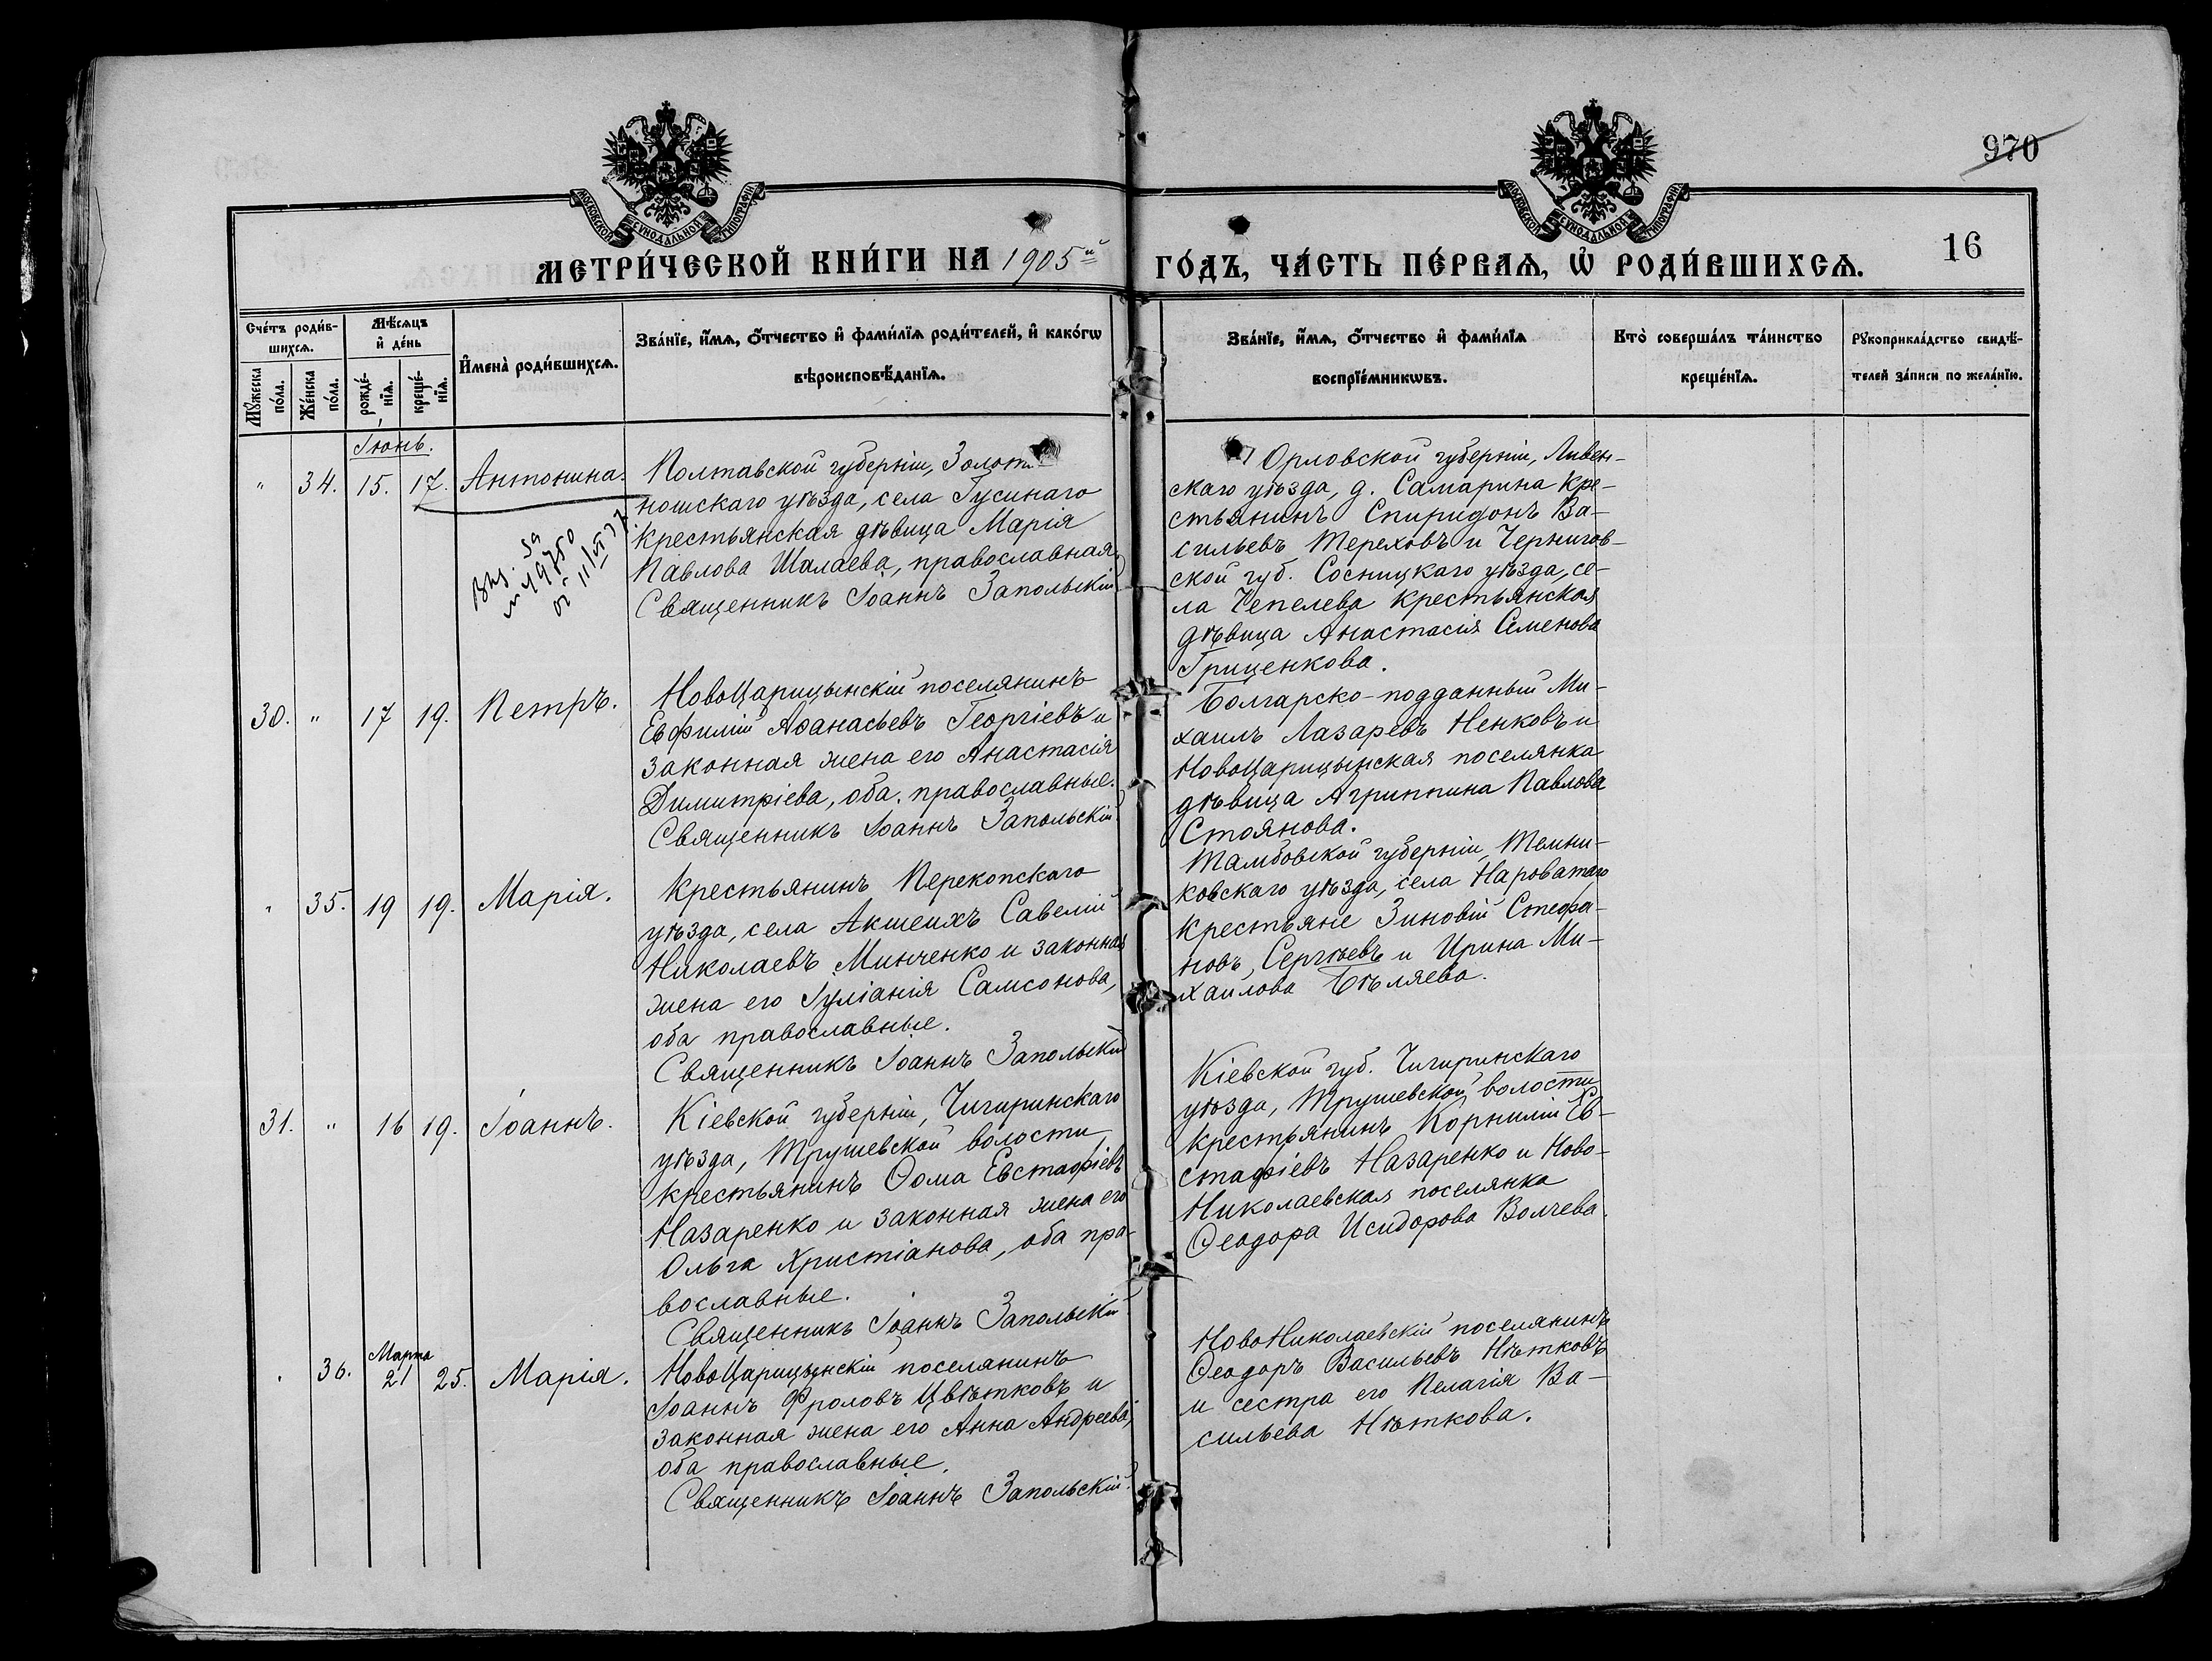 970
МОСКОВСКОЙ СУНОДАЛЬНОЙ ТИПОГРАФІИ
МОСКОВСКОЙ СУНОДАЛЬНОЙ ТИПОГРАФІИ
МЕТРИ́ЧЕСКОЙ КНИ́ГИ НА 1905й ГО́ДЪ, ЧА́СТЬ ПЕ́РВАѦ, Ѡ҆ РОДИ́ВШИХСѦ.
16
Сче́тъ роди́в-
шихсѧ.
Мꙋ́жеска
по́ла.
Же́нска
по́ла.
Мѣ́сѧцъ
и҆ де́нь
рожде́-
нїѧ.
креще́-
нїѧ.
И҆мена̀ роди́вшихсѧ.
Зва́нїе, и҆́мѧ, ѻ҆́тчество и҆ фами́лїѧ роди́телей, и҆ како́гѡ
вѣроисповѣ́данїѧ.
Зва́нїе, и҆́мѧ, ѻ҆́тчество и҆ фами́лїѧ
воспрїе́мникѡвъ.
Кто̀ соверша́лъ та́инство
креще́нїѧ.
Рꙋкоприкла́дство свидѣ́-
телей за́писи по жела́нїю.
Іюнь.
" 34. 15. 17. Антонина.
за
Полтавской губерніи, Золото-
ношскаго уѣзда, села Гусинаго
крестьянская дѣвица Марія
Павлова Шалаева, православная.
Священникъ Іоаннъ Запольскій
Орловской губерніи, Ливен-
скаго уѣзда, д. Самарина кре-
стьянинъ Спиридонъ Ва-
сильевъ Тереховъ и Чернигов-
ской губ. Сосницкаго уѣзда, се-
ла Чепелева крестьянская
дѣвица Анастасія Семенова
Гриценкова.
30. " 17 19. Петръ.
НовоЦарицынскій поселянинъ
Евфимій Аѳанасьевъ Георгіевъ и
законная жена его Анастасія
Димитріева, оба православные.
Священникъ Іоаннъ Запольскій.
Болгарско-подданный Ми-
хаилъ Лазаревъ Ненковъ и
НовоЦарицынская поселянка
дѣвица Агриппина Павлова
Стоянова.
" 35. 19 19. Марія.
Крестьянинъ Перекопскаго
уѣзда, села Акшеихъ Савелій
Николаевъ Минченко и законная
жена его Іуліанія Самсонова,
оба православные.
Священникъ Іоаннъ Запольскій
Тамбовской губерніи, Темни-
ковскаго уѣзда, села Нароватаго
крестьяне Зиновій Стефа-
новъ Сергѣевъ и Ирина Ми-
хаилова Бѣляева.
31. " 16 19. Іоаннъ.
Кіевской губерніи, Чигиринскаго
уѣзда, Трушевской волости
крестьянинъ Ѳома Евстафіевъ
Назаренко и законная жена его
Ольга Христіанова, оба пра-
вославные.
Священникъ Іоаннъ Запольскій
Кіевской губ. Чигиринскаго
уѣзда, Трушевской волости
крестьянинъ Корнилій Ев-
стафіевъ Назаренко и Ново-
Николаевская поселянка
Ѳеодора Исидорова Волчева.
Марта
" 36. 21 25. Марія.
НовоЦарицынскій поселянинъ
Іоаннъ Фроловъ Цвѣтковъ и
законная жена его Анна Андреева,
оба православные.
Священникъ Іоаннъ Запольскій.
НовоНиколаевскій поселянинъ
Ѳеодоръ Васильевъ Нѣтковъ
и сестра его Пелагія Ва-
сильева Нѣткова.